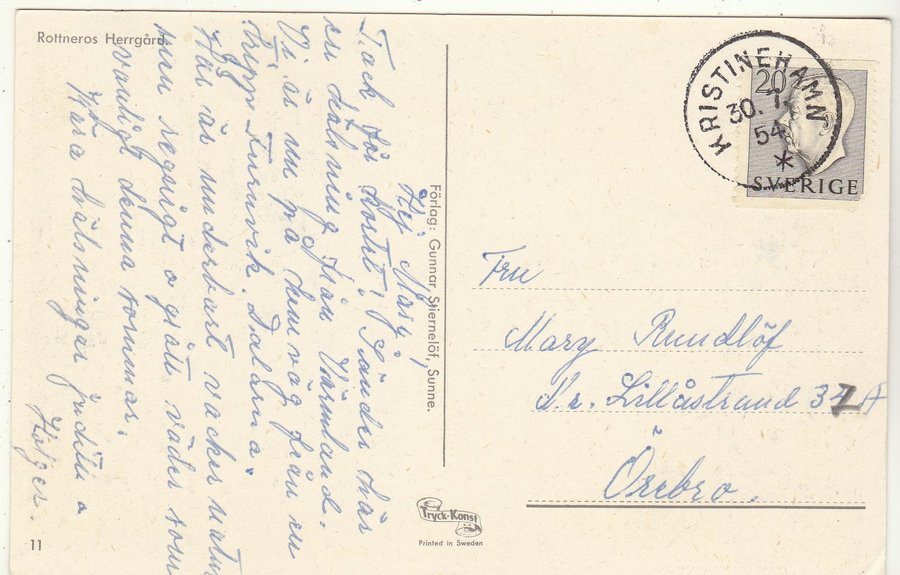 Rottneros Herrgård.
Hej Mary!
Tack för kortet! Sänder här
en hälsning från Värmland.
Vi är nu på hemväg från en
tripp Furuvik. Dalarna.
Här är underbart vacker natur
men regnigt o grått väder som
vanligt denna sommar.
Kära hälsningar Judith o
Holger.
11
Förlag: Gunnar Stiernelöf, Sunne.
Tryck-Konst
Printed in Sweden
KRISTINEHAMN
30. 7.
54
20
SVERIGE
Fru
Mary Rundlöf
N:r. Lillåstrand 37 A
Örebro.